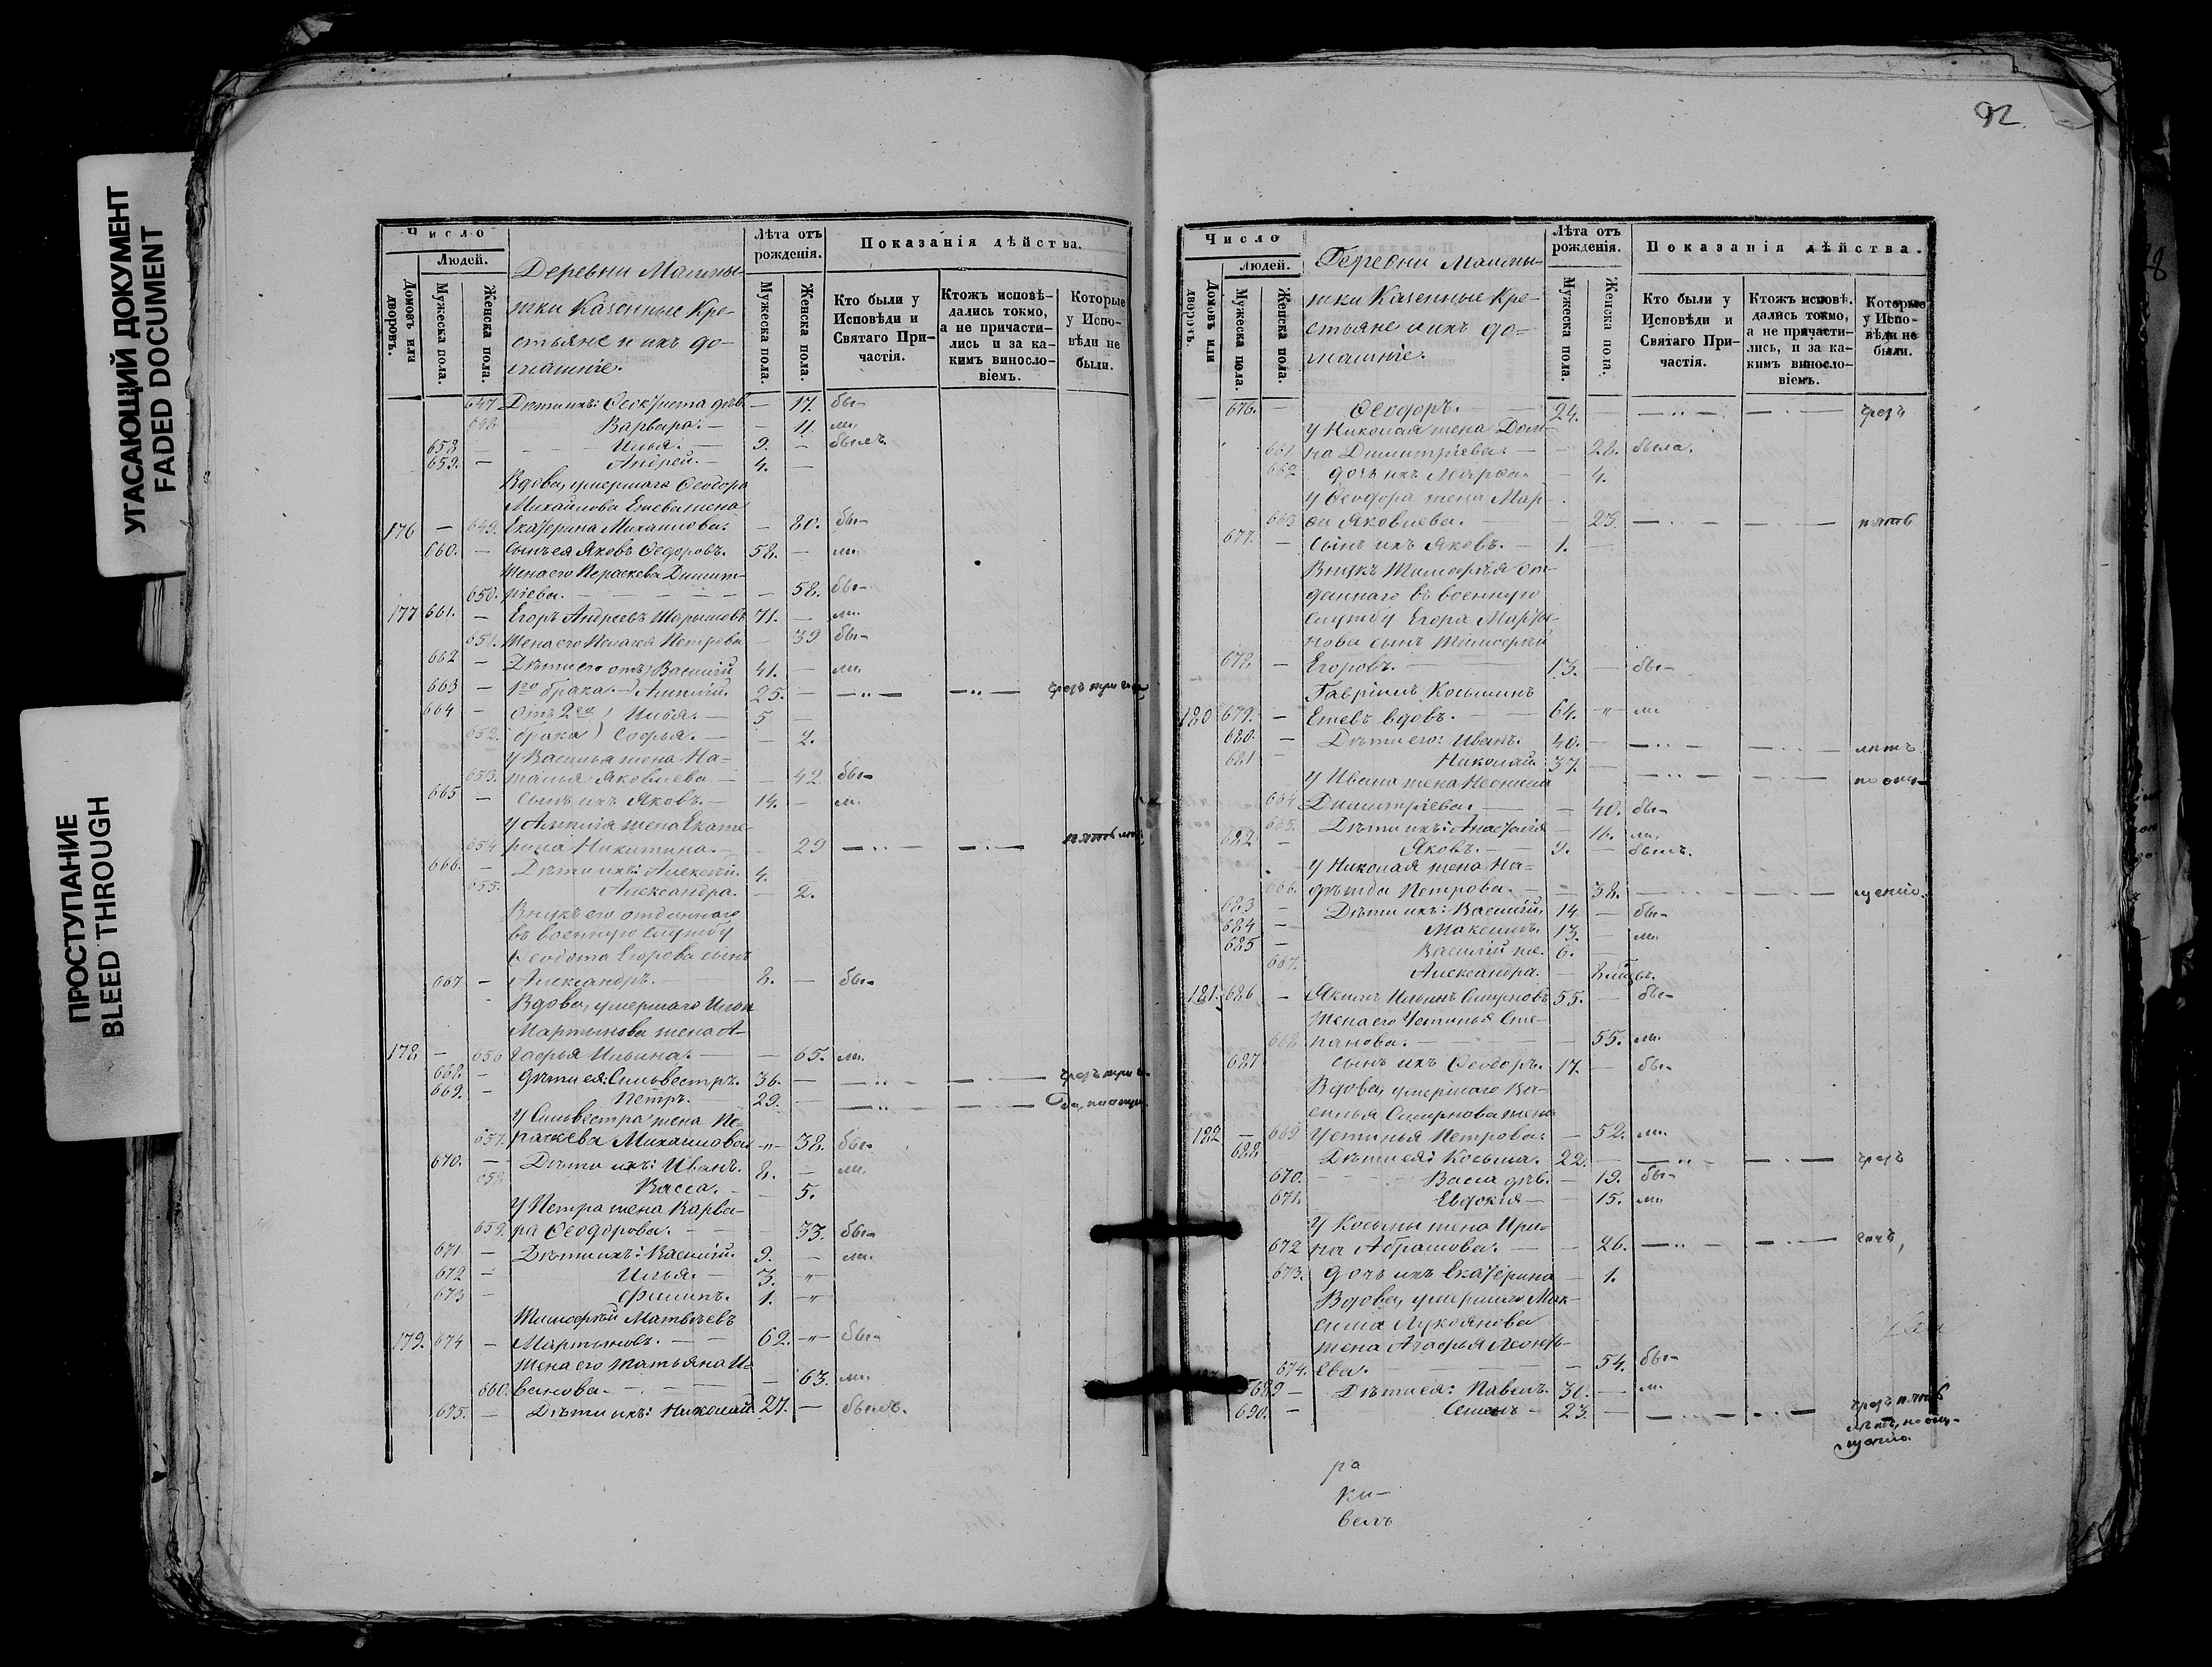 УГАСАЮЩИЙ ДОКУМЕНТ
FADED DOCUMENT
ПРОСТУПАНИЕ
BLEED THROUGH
Число
Людей.
Домовъ или дворовъ.
Мужеска пола.
Женска пола.
Деревни
тки Казенные Кре-
стьяне и ихъ до-
машніе.
Лѣта отъ рожденія.
Мужеска пола.
Женска пола.
Показанія дѣйства.
Кто были у Исповѣди и Святаго При-частія.
Ктожъ исповѣ-дались токмо, а не причасти-лись и за ка-кимъ винослo-віемъ.
Которые у Испо-вѣди не были.
647 Дѣти ихъ: Ѳеоктиста дѣв. — 17. бы-
648 Варвара. — — 11. ли
658 — Илья. — 9. — былъ
659. — Андрей. — 4. —
Вдова, умершаго Ѳеодора
Михайлова жена
176 — 649. Екатерина Михаилова. — 80. бы-
660. — Сынъ ея Яковъ Ѳедоровъ. 58. — ли
Жена его Параскева Димит-
650. ріева. — 58. бы-
177 661. — Егоръ Андреевъ 71. — ли
651. Жена его Пелагея Петрова — 39 бы-
662 — Дѣти его отъ Василій 41. — ли
663 — 1го брака. 25. — — „ — — „ — чрезъ три
664 — Отъ 2го Илья. — 5 —
652. брака Софья. — — 2.
у Василья жена На-
653. талья Яковлева — — 42 бы-
665 — Сынъ ихъ Яковъ. — 14. — ли
жена Екате-
654 рина Никитина. — — 29 — „ — — „ — пять
666. — Дѣти ихъ: Алексѣй. 4. —
655. Александра. — 2.
Внукъ его отданнаго
въ военную службу
Ѳеодота Егорова сынъ
667 — Александръ. — 8. — бы-
Вдова, умершаго
Мартынова жена А-
178. — 656 гафья Ильина. — — 65. ли
668. — Дѣти ея: Сильвестръ. 36. — — „ — — „ — чрезъ три
669. — Петръ. — 29. — — „ — — „ —
У Сильвестра жена Па-
657. раскева Михаилова — „ — 38. бы-
670. — Дѣти ихъ: Иванъ. 8. — ли
658 Васса. — — 5.
У Петра жена Варва-
659. ра Ѳеодорова. — — 33. бы-
671 — Дѣти ихъ: Василій. 9. — ли
672 — Илья. — 3. — „
673 — Филиппъ. 1. — „
Тимоѳей Матвѣевъ
179. 674 — Мартыновъ. — 62. — „ — бы-
Жена его Татьяна И-
660. ванова. — — 63. ли
675. — Дѣти ихъ: Николай 27. — былъ.
92.
Число
Людей.
Домовъ или дворовъ.
Мужеска пола.
Женска пола.
Деревни
тки Казенные Кре-
стьяне и ихъ до-
машніе.
Лѣта отъ рожденія.
Мужеска пола.
Женска пола.
Показанія дѣйства.
Кто были у Исповѣди и Святаго При-частія.
Ктожъ исповѣ-дались токмо, а не причасти-лись, и за ка-кимъ винослo-віемъ.
Которые у Испо-вѣди не были.
676. — Ѳеодоръ. — 24. — „ — — „ — чрезъ
у Николая жена Дом-
661 на Димитріева. — — 28. была.
662 дочь ихъ Марѳа. — 4.
у Ѳеодора жена Мар-
663 ѳа Яковлева. — — 23. — „ — — „ — пять
677. — Сынъ ихъ Яковъ. — 1. —
Внукъ Тимоѳея от-
даннаго въ военную
службу Егора Марты-
нова сынъ Тимоѳей
678. — Егоровъ. — 13. — бы-
Гавріилъ Косьминъ
180 679. — вдовъ. — 64. — „ — ли
680. — Дѣти его: Иванъ. 40. — — „ — — „ — лѣтъ
681 Николай 37. — — „ — — „ — по опу-
у Ивана жена Неонила
664 Димитріева. — — 40. бы-
665. Дѣти ихъ: Анастасія — 16. ли
682. — Яковъ. — 9. — былъ.
у Николая жена На-
666. дѣжда Петрова. — — 38. — „ — — „ — щенію.
683 — Дѣти ихъ: Василій. 14. — бы-
684 — Максимъ. 13. — ли
685 — Василій же. 6. —
667. Александра. — 8
181. 686 — Якимъ Ильинъ Смирновъ 55. — бы-
Жена его Устинья Сте-
668 панова. — — 55. ли
687 Сынъ ихъ Ѳеодоръ. 17. — бы-
Вдова, умершаго Ва-
силья Смирнова жена
182 — 669. Устинья Петрова. — 52. ли
688. Дѣти ея: Косьма. 22. — — „ — — „ — чрезъ
670. Васса дѣв. — 19. бы-
671. Евдокія — — 15. ли
у Косьмы жена Ири-
672 на Абрамова. — — 26. — „ — — „ —
673. дочь ихъ Екатерина — 1.
Вдова, умершаго Мак-
сима Лукоянова
жена Агафья Леонть-
674. ева. — — 54. бы-
689 — Дѣти ея: Павелъ. 30. — ли
690. — Семенъ — 23. — — „ — — „ — чрезъ пять
лѣтъ, по опу-
щенію.
ра
ки-
велъ